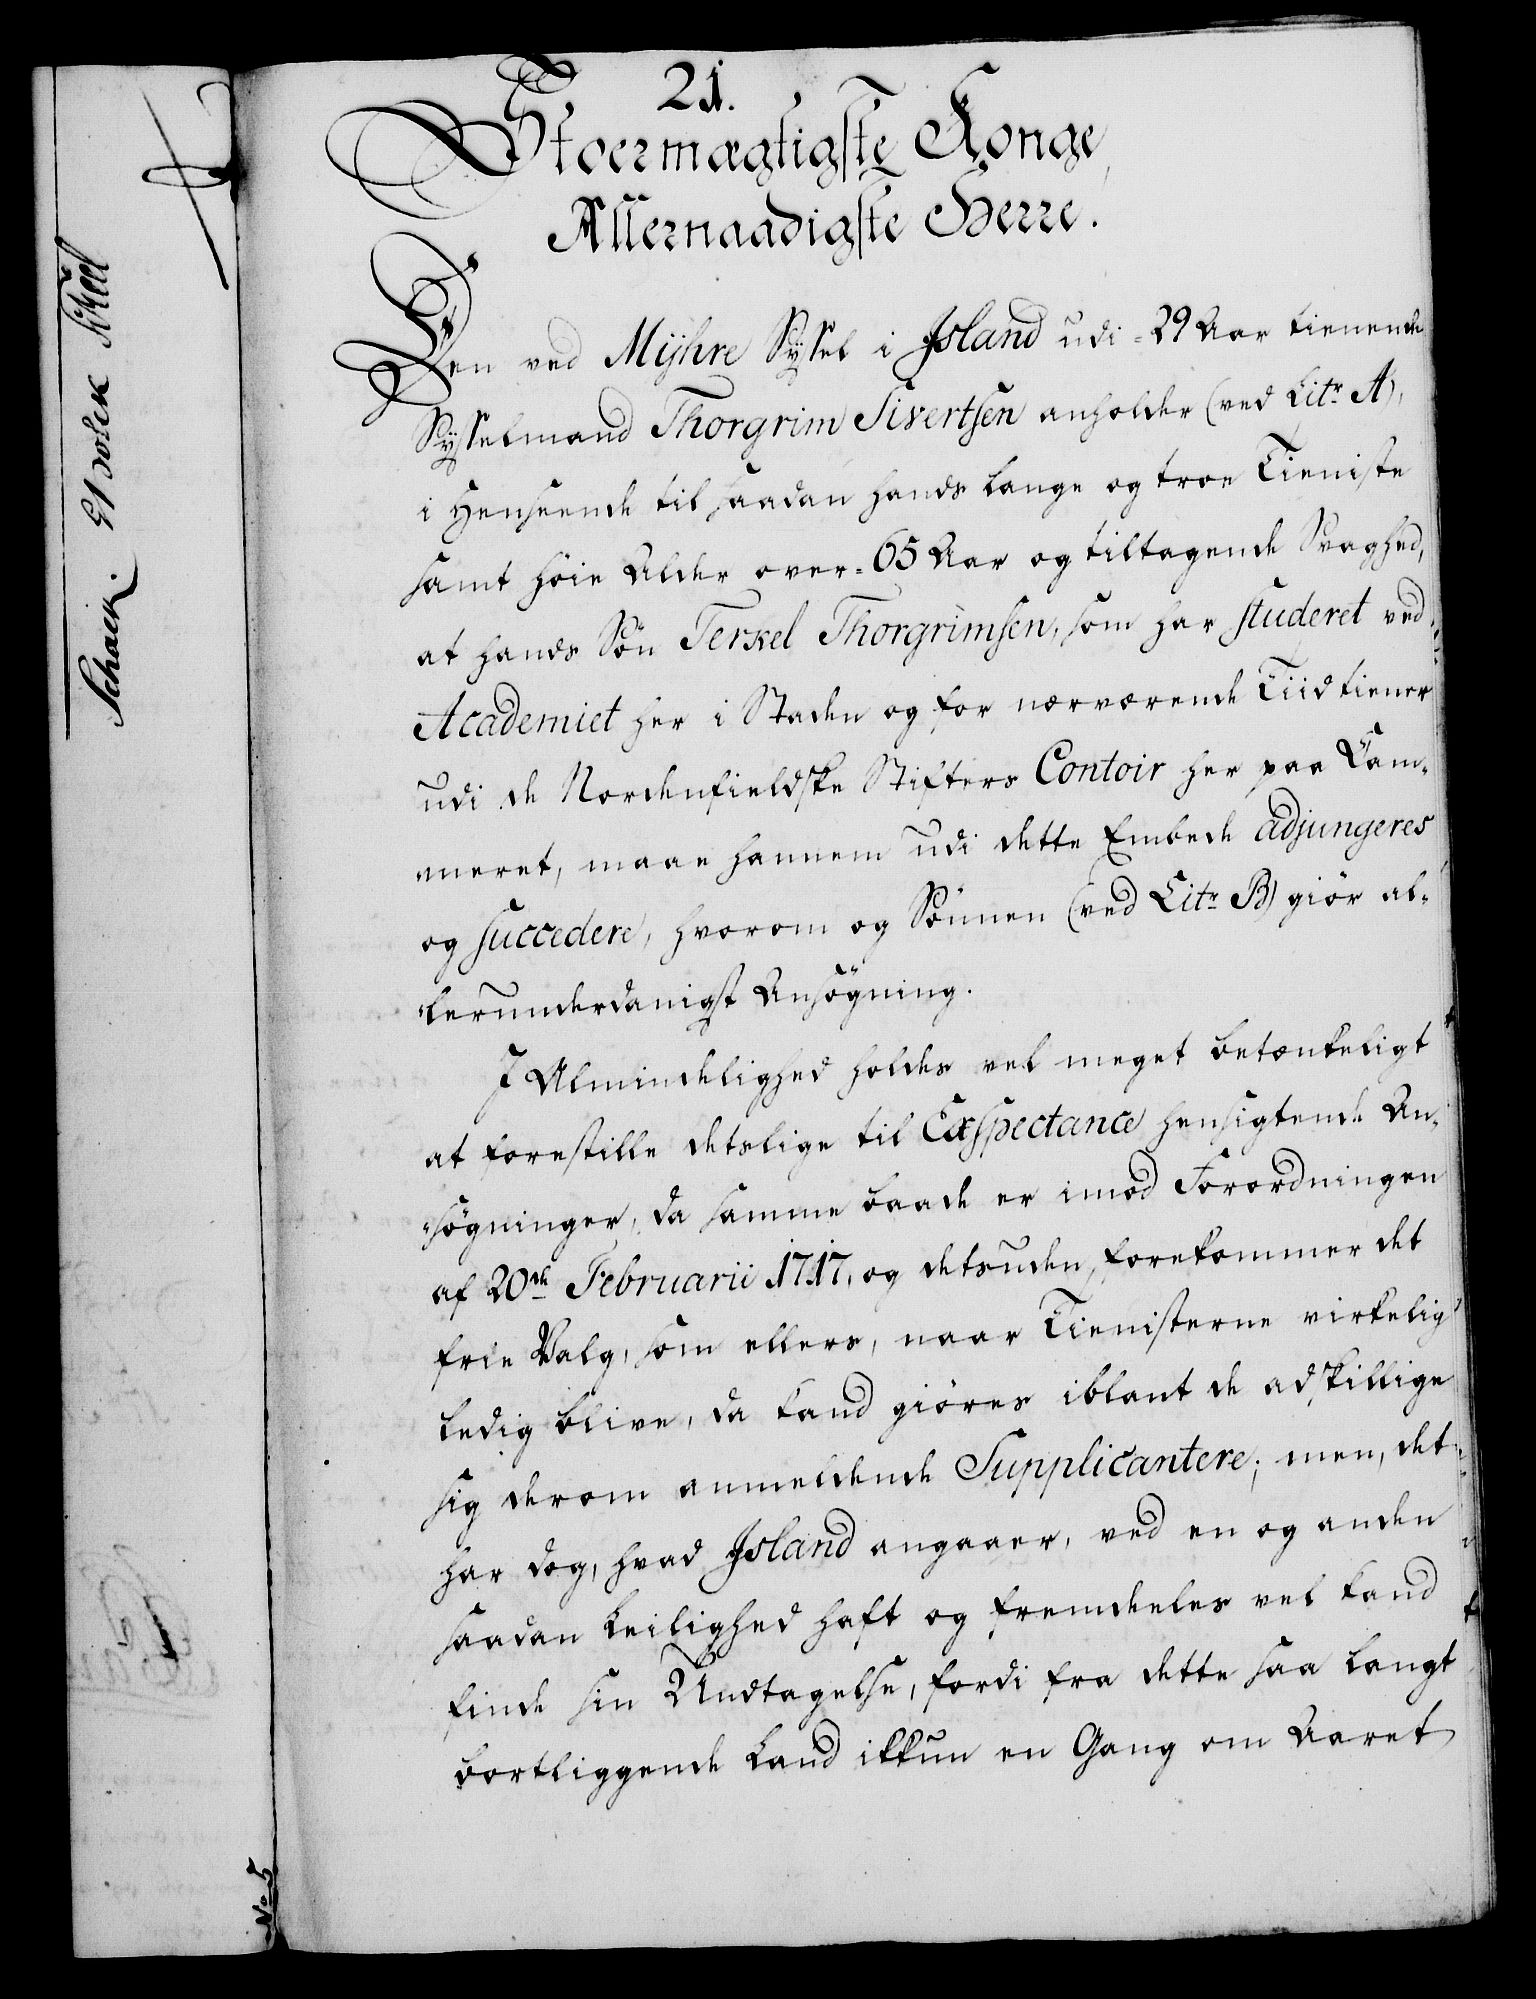 21.
Stoermægtigste Konge,
Allernaadigste Herre.
Den ved Mÿhre Syssel i Jsland udi 29 Aar tienende
Sysselmand Thorgrim Sivertsen anholder (ved Litr A),
i Henseende til saadan hands lange og troe Tieniste
samt høie Alder over 65 Aar og tiltagende Svaghed,
at hands Søn Terkel Thorgrimsen, som har studeret ved
Academiet her i Staden og for nærværende Tiid tiener
udi de Nordenfieldske Stifters Contoir her paa Cam-
meret, maae hannem udi dette Embede adjungeres
og succedere, hvorom og Sønnen (ved Litr B) giør al-
lerunderdanigst Ansøgning.
J Almindelighed holdes vel meget betænkeligt
at forestille detslige til Exspectance hensigtende An-
søgninger, da samme baade er imod Forordningen
af 20de Februarii 1717, og detsuden forekommer det
frie Valg, som ellers, naar Tienisterne virkelig
ledig blive, da kand giøres iblant de adskillige
sig derom anmeldende Supplicantere; men, det
har dog, hvad Jsland angaaer, ved en og anden
saadan Leilighed haft og fremdeeles vel kand
finde sin Undtagelse, fordi fra dette saa langt
bortliggende Land ikkun en Gang om Aaret
Schack.
No 5